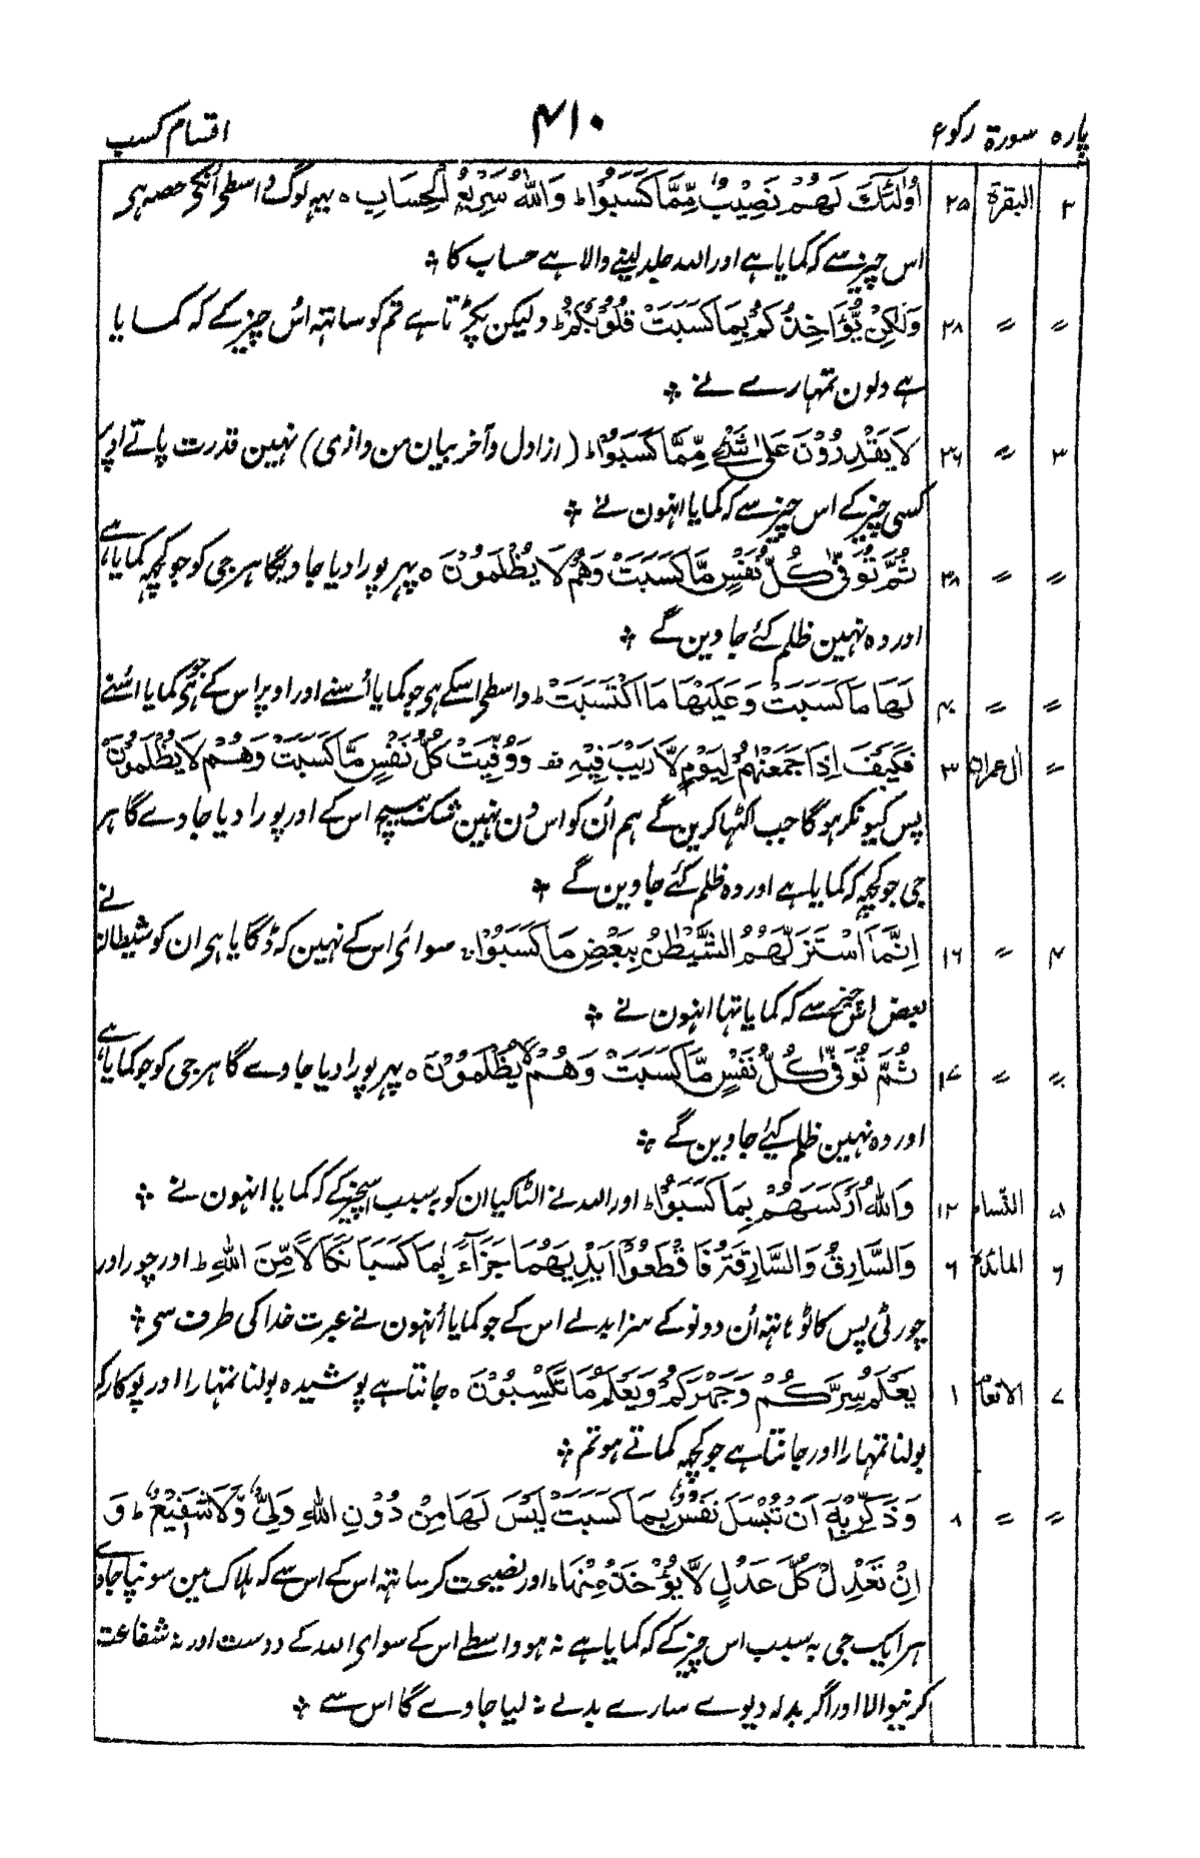 پارہ سورۃ رکوع ۴۱۰ اقسام کسب
۲ البقرۃ ۲۵ اُولٰٓئِكَ لَهُمْ نَصِیْبٌ مِّمَّا كَسَبُوْا ؕ وَاللّٰهُ سَرِیْعُ الْحِسَابِ ہ یہہ لوگ واسطی انکی حصہ ہی
اس چیز سے کہ کمایا ہے اور اللہ جلد لینے والا ہے حساب کا ؞
〃 〃 ۲۸ وَلٰكِنْ یُّؤَاخِذُكُمْ بِمَا كَسَبَتْ قُلُوْبُكُمْ ؕ ولیکن پکڑتا ہے تم کو ساتہہ اس چیز کے کہ کمایا
ہے دلون تمہارے نے ؞
۳ 〃 ۳۶ لَا یَقْدِرُوْنَ عَلٰی شَیْءٍ مِّمَّا كَسَبُوْا ؕ (از اول و آخر بیان من و ازی) نہین قدرت پاتے اوپر
کسی چیز کے اس چیز سے کہ کمایا انہون نے ؞
〃 〃 ۳۸ ثُمَّ تُوَفّٰی كُلُّ نَفْسٍ مَّا كَسَبَتْ وَهُمْ لَا یُظْلَمُوْنَ ہ پہر پورا دیا جاویگا ہر جی کو جو کچہہ کمایا ہے
اور وہ نہین ظلم کئے جاوین گے ؞
〃 〃 ۴۰ لَهَا مَا كَسَبَتْ وَعَلَیْهَا مَا اكْتَسَبَتْ ؕ واسطی اسکے ہی جو کمایا اُسنے اور اوپر اس کے ہی جو کمایا اسنے
〃 اٰل عمران ۳ فَكَیْفَ اِذَا جَمَعْنٰهُمْ لِیَوْمٍ لَّا رَیْبَ فِیْهِ قف وَوُفِّیَتْ كُلُّ نَفْسٍ مَّا كَسَبَتْ وَهُمْ لَا یُظْلَمُوْنَ
پس کیونکر ہوگا جب اکٹہا کرین گے ہم اُن کو اس دن نہین شک بیچ اس کے اور پورا دیا جاوے گا ہر
جی جو کچہہ کہ کمایا ہے اور وہ ظلم کئے جاوین گے ؞
۴ 〃 ۱۶ اِنَّمَا اسْتَزَلَّهُمُ الشَّیْطٰنُ بِبَعْضِ مَا كَسَبُوْا ۚ سوائے اس کے نہین کہ ڈگایا ہی ان کو شیطان نے
بعض اس چیز سے کہ کمایا تہا انہون نے ؞
〃 〃 ۱۷ ثُمَّ تُوَفّٰی كُلُّ نَفْسٍ مَّا كَسَبَتْ وَهُمْ لَا یُظْلَمُوْنَ ہ پہر پورا دیا جاوے گا ہر جی کو جو کمایا ہے
اور وہ نہین ظلم کئے جاوین گے ؞
۵ النّساء ۱۲ وَاللّٰهُ اَرْكَسَهُمْ بِمَا كَسَبُوْا ؕ اور اللہ نے الٹا کیا ان کو بہ سبب اسچیز کے کہ کمایا انہون نے ؞
۶ المائدۃ ۶ وَالسَّارِقُ وَالسَّارِقَةُ فَاقْطَعُوْا اَیْدِیَهُمَا جَزَآءً بِمَا كَسَبَا نَكَالًا مِّنَ اللّٰهِ ؕ اور چور اور
چورٹی پس کاٹو ہاتہہ اُن دونو کے سزا بدلے اس کے جو کمایا اُنہون نے عبرت خدا کی طرف سی ؞
۷ الانعام ۱ یَعْلَمُ سِرَّكُمْ وَجَهْرَكُمْ وَیَعْلَمُ مَا تَكْسِبُوْنَ ہ جانتا ہے پوشیدہ بولنا تمہارا اور پوکار کر
بولنا تمہارا اور جانتا ہے جو کچہہ کماتے ہو تم ؞
〃 〃 ۸ وَذَكِّرْ بِهٖ اَنْ تُبْسَلَ نَفْسٌ بِمَا كَسَبَتْ لَیْسَ لَهَا مِنْ دُوْنِ اللّٰهِ وَلِیٌّ وَّلَا شَفِیْعٌ ؕ وَ
اِنْ تَعْدِلْ كُلَّ عَدْلٍ لَّا یُؤْخَذْ مِنْهَا ؕ اور نصیحت کر ساتہہ اس کے اس سے کہ ہلاک مین سونپا جاوے
ہر ایک جی بہ سبب اس چیز کے کہ کمایا ہے نہ ہو واسطے اس کے سوای اللہ کے دوست اور نہ شفاعت
کرنیوالا اور اگر بدلہ دیوے سارے بدلے نہ لیا جاوے گا اس سے ؞